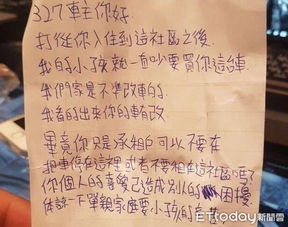 327車主你好
打從你入住到這社區之後
我的小孩就一直吵要買你這台車
我們家是不準改車的
我看的出來你的車有改
畢竟你只是承租戶可以不要在
把車停在這裡或者不要租在這社區嗎?
你個人的喜愛已造成別人的困擾
体諒一下單親家庭要小孩的
ETtoday新聞雲